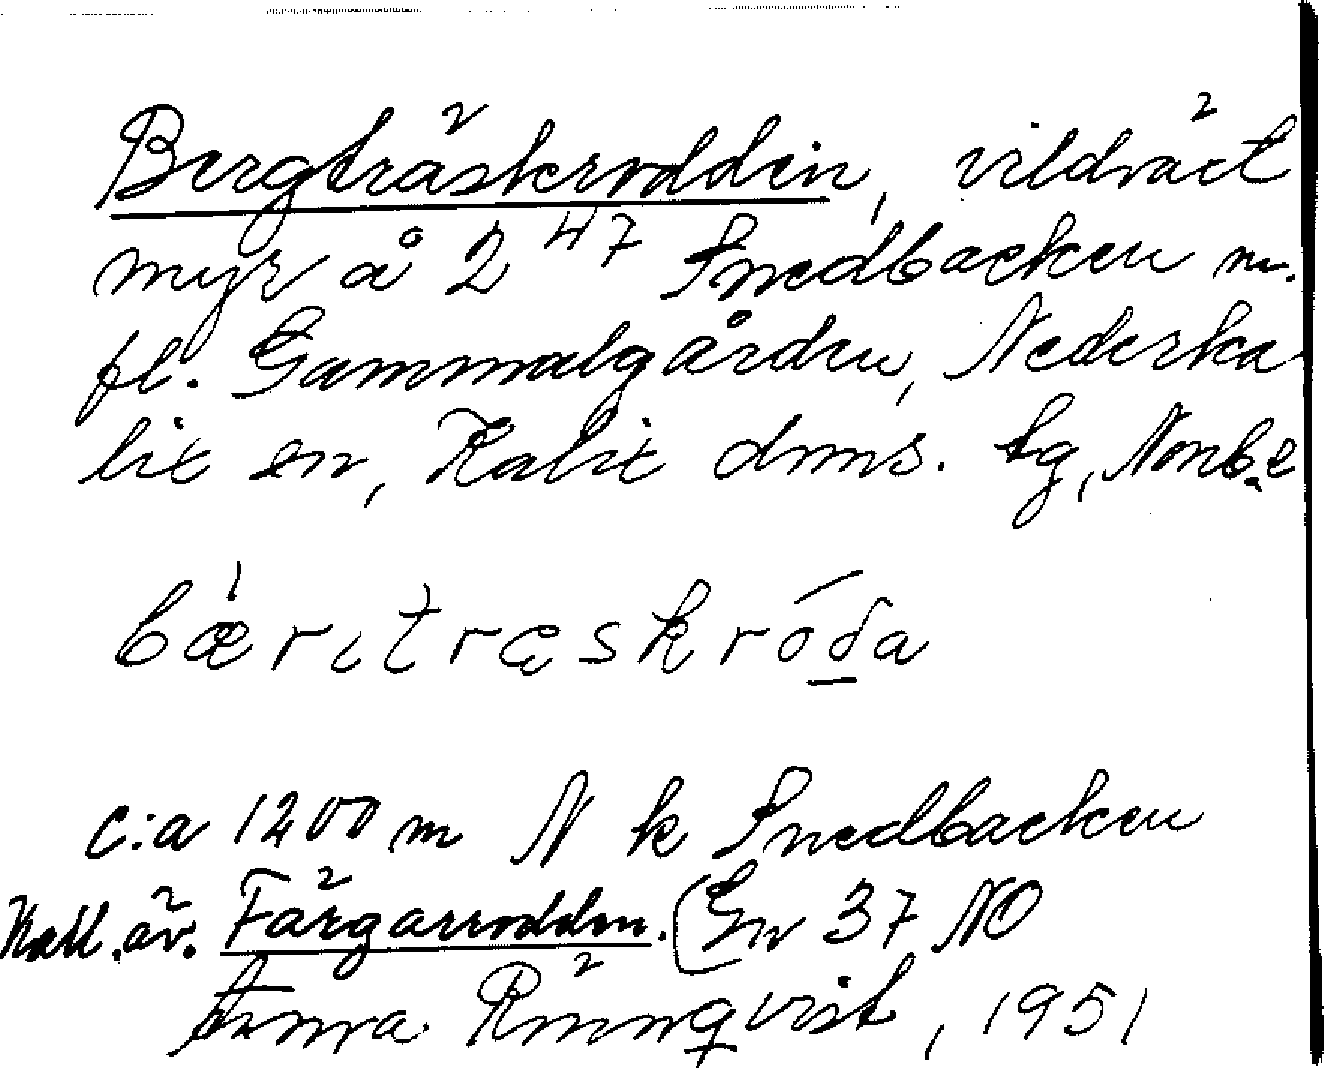 Bergträskrodden, vildväxt
myr å 2 47 Snedbacken m.
fl. Gammalgården, Nederka
lix sn, Kalix dms. tg, Nonb.e
bærɩtræskróda
c:a 1200 m N k Snedbacken
Kall. äv. Färgarrodden. (Gn 37 NO
Anna Rönnqvist, 1951